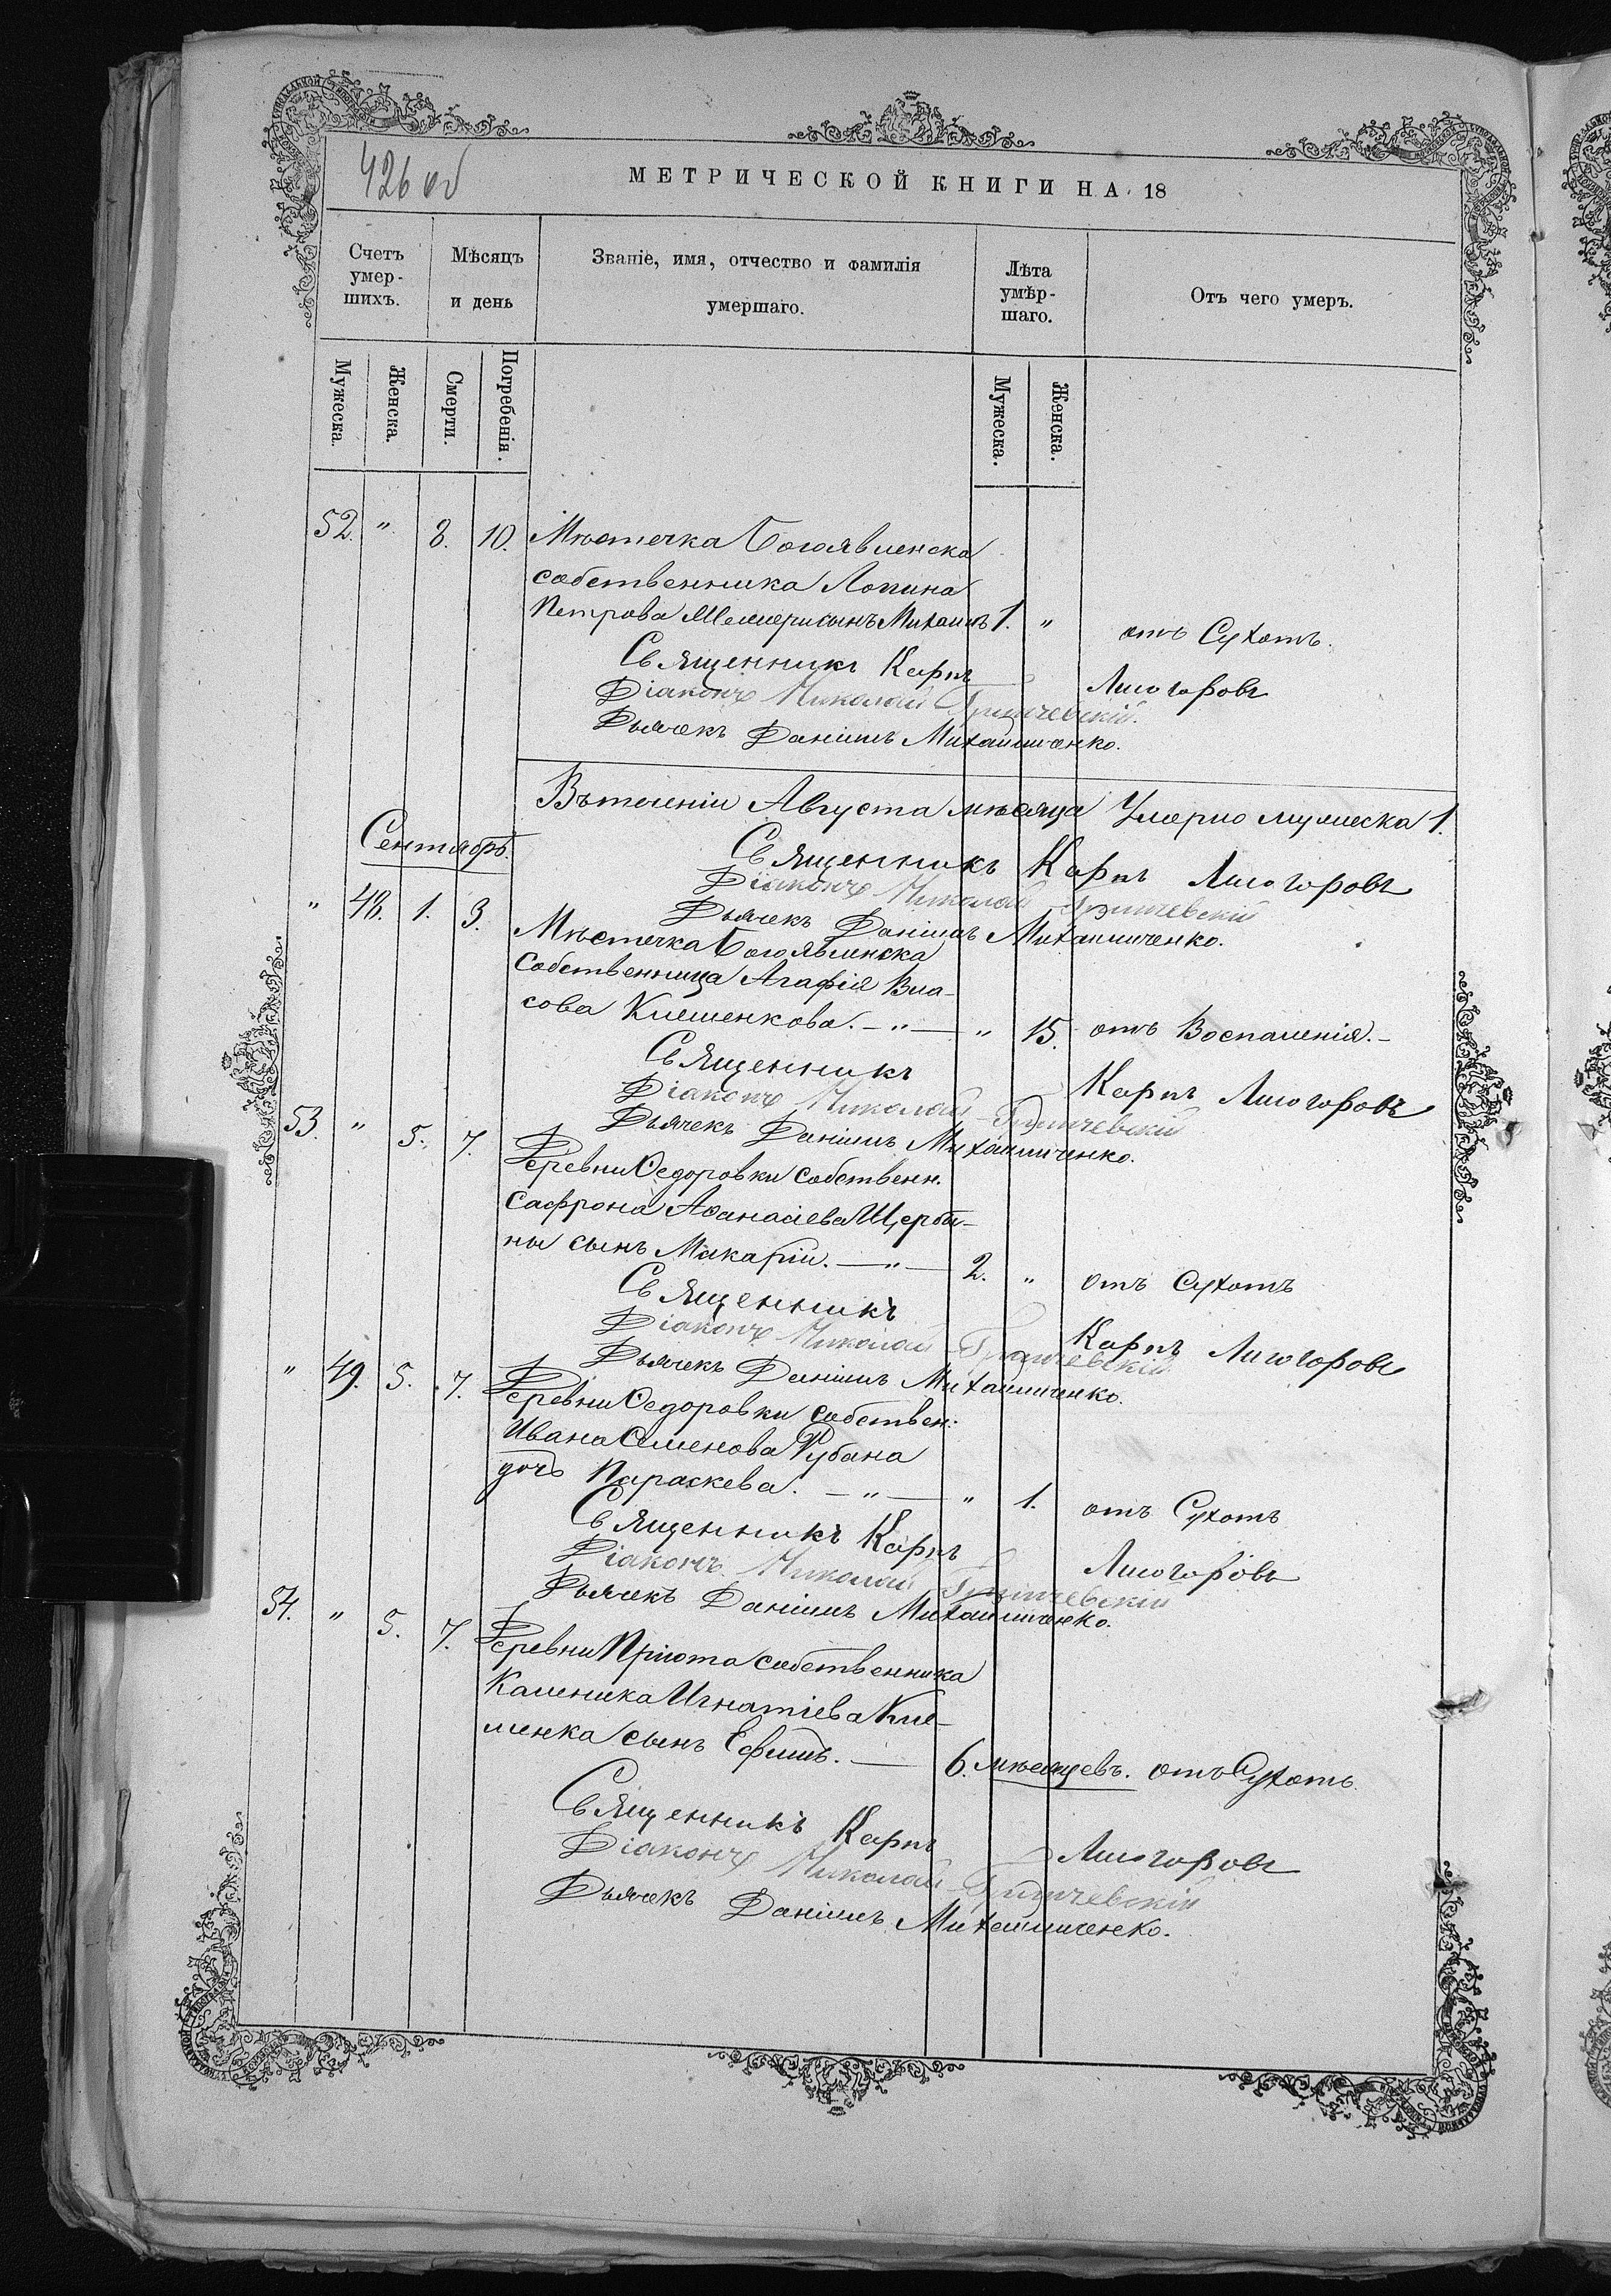 426 об
МЕТРИЧЕСКОЙ КНИГИ НА 18
Счетъ умер-шихъ.
Мѣсяцъ и день
Званіе, имя, отчество и фамилія умершаго.
Лѣта умѣр-шаго.
Отъ чего умеръ.
Мужеска.
Женска.
Смерти.
Погребенія.
Мужеска.
Женска.
52. " 8. 10. Мѣстечка Богоявленска
собственника Логина
Петрова сынъ Михаилъ 1. " отъ Сухотъ.
Священникъ Карпъ Лисогоровъ
Діаконъ Николай
Дьячекъ Даніилъ Михайличенко.
Въ теченіи Августа мѣсяца Умерло мужеска 1.
Священникъ Карпъ Лисогоровъ
Діаконъ Николай
Дьячекъ Даніилъ Михайличенко.
Сентябрь.
" 48. 1. 3. Мѣстечка Богоявленска
собственница Агафія Вла-
сова Клешенкова. — " — " 15. отъ Воспаленія. –
Священникъ Карпъ Лисогоровъ
Діаконъ Николай
Дьячекъ Даніилъ Михайличенко.
53. " 5. 7. Деревни Ѳедоровки собственн.
Сафрона Аѳанасіева Щерби-
ны сынъ Макарій. — " — 2. " отъ Сухотъ
Священникъ Карпъ Лисогоровъ
Діаконъ Николай
Дьячекъ Даніилъ Михайличенко.
" 49. 5. 7. Деревни Ѳедоровки собствен:
Ивана Семенова Рубана
дочь Параскева. — " — " 1. отъ Сухотъ
Священникъ Карпъ Лисогоровъ
Діаконъ Николай
Дьячекъ Даніилъ Михайличенко.
54. " 5. 7. Деревни Пріюта собственника
Каленика Игнатіева Кле-
менка сынъ Ефимъ. — 6. мѣсяцевъ. отъ Сухотъ.
Священникъ Карпъ Лисогоровъ
Діаконъ Николай
Дьячекъ Даніилъ Михайличенко.